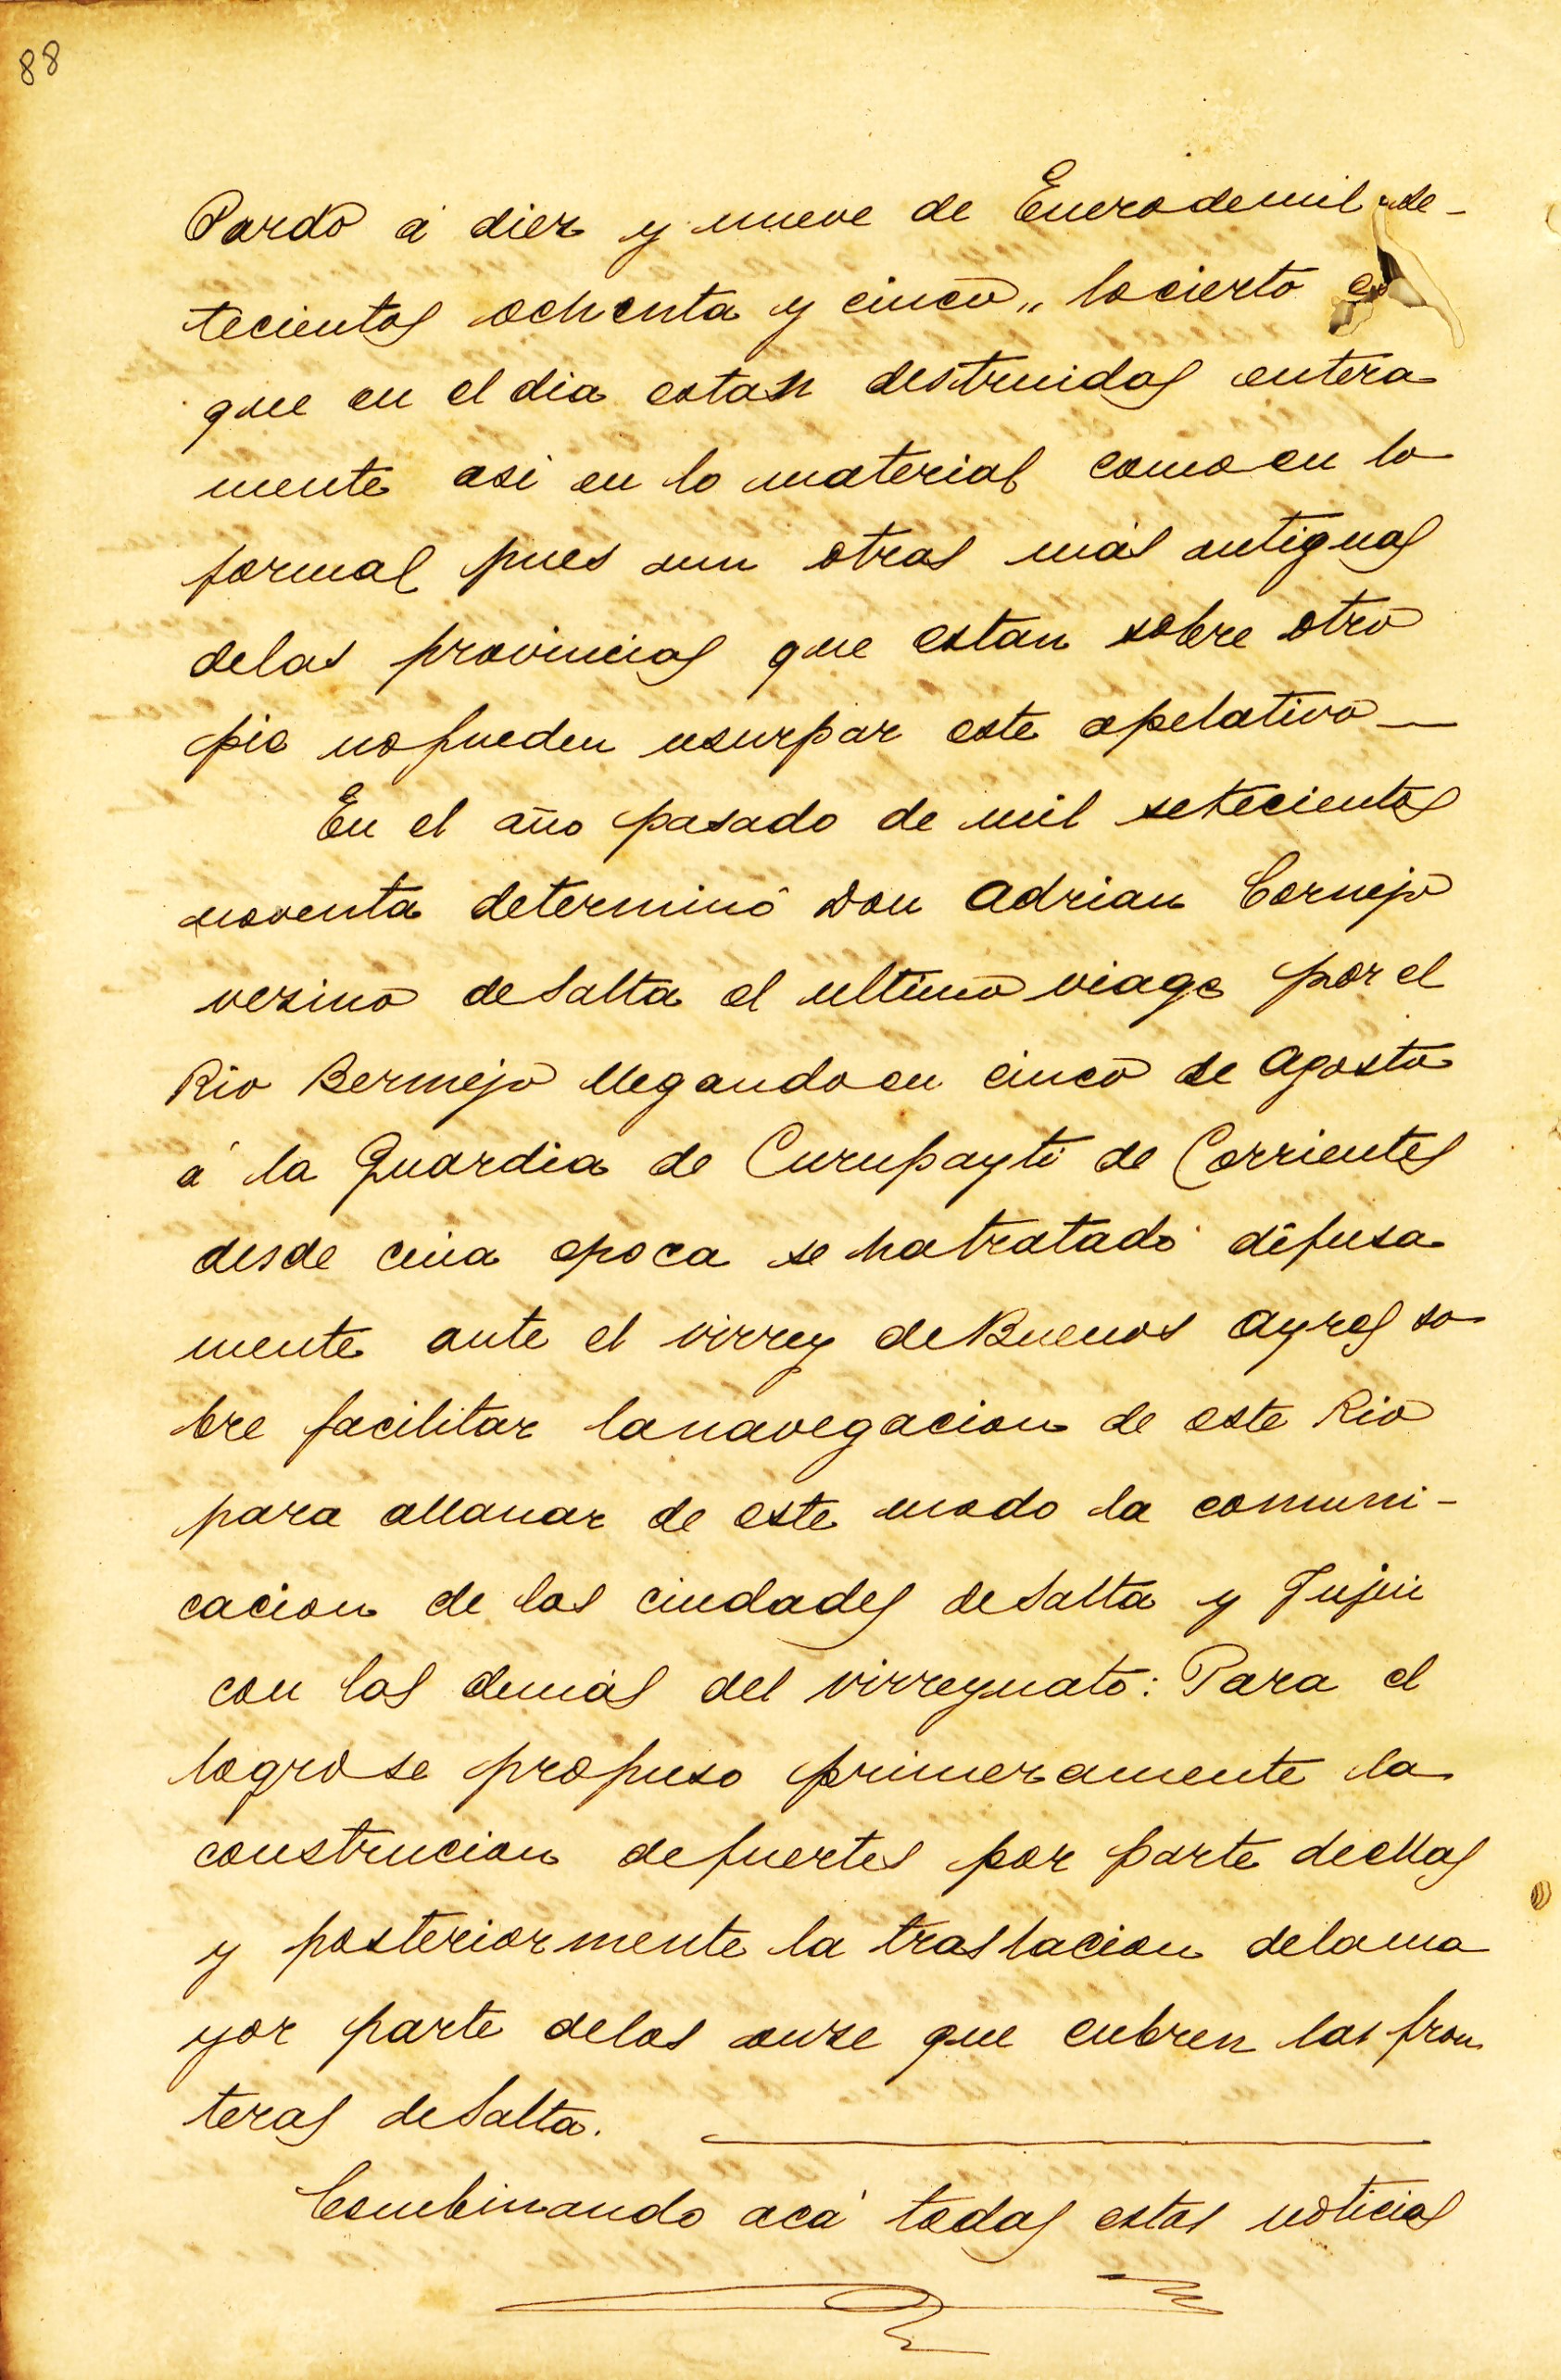 88
Pardo á diez y nueve de Enero de mil se-
tecientos ochenta y cinco,, lo cierto es
que en el dia estan destruidas entera
mente asi en lo material como en lo
formal pues aun otras más antiguas
delas provincias que estan sobre otro
pie no pueden usurpar este apelativo —
En el año pasado de mil setecientos
noventa determinó Don Adrian Cornejo
vezino de Salta el ultimo viage por el
Rio Bermejo llegando en cinco de Agosto
á la Guardia de Curupayti de Corrientes
desde cuia epoca se ha tratado difusa
mente ante el virrey de Buenos Ayres so
bre facilitar la navegacion de este Rio
para allanar de este modo la comuni-
cacion de las ciudades de Salta y Jujui
con las demás del virreynato: Para el
logro se propuso primeramente la
construcion de fuertes por parte de ellas
y posteriormente la traslacion de la ma
yor parte delos onze que cubren las fron
teras de Salta.
Combinando acá todas estas noticias